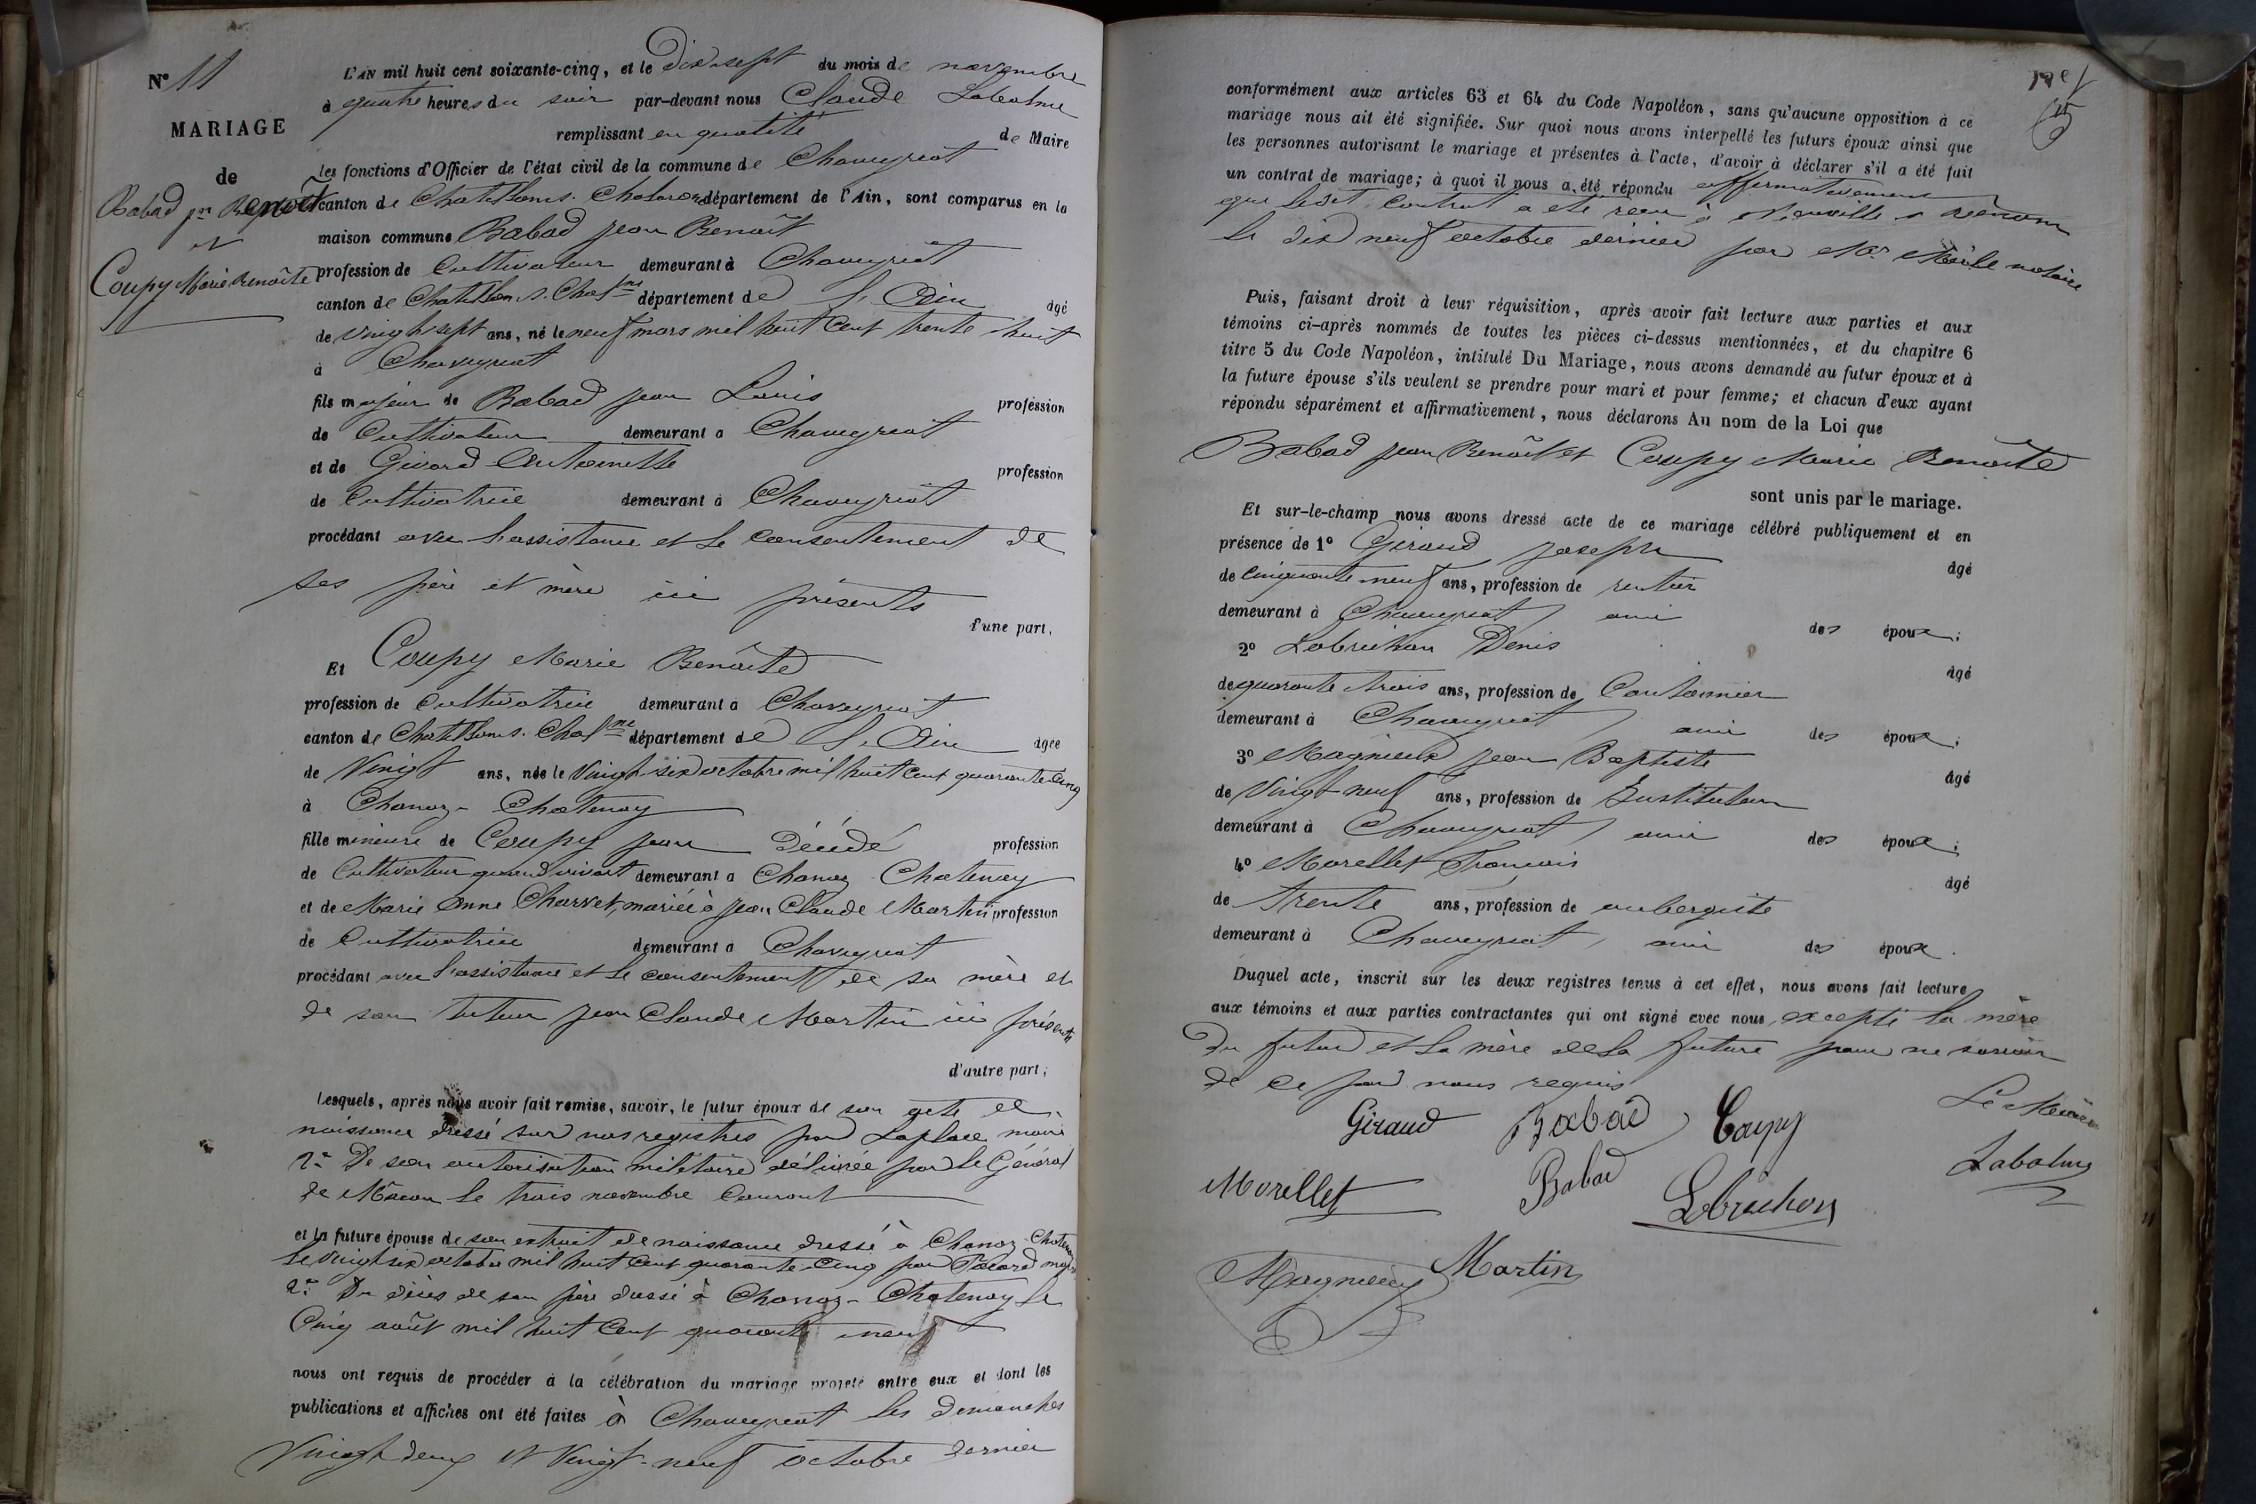 N° 11
MARIAGE
de
Babad jn Benoît
et
Coupy Marie Benoîte
L'AN mil huit cent soixante-cinq, et le Dix-sept du mois de novembre
à quatre heures du soir par-devant nous Claude Labalme
remplissant en qualité de Maire
les fonctions d'Officier de l'état civil de la commune de Chaveyriat
canton de Chatillon s. Chalaronne département de l'Ain, sont comparus en la
maison commune Babad jean Benoît
profession de Cultivateur demeurant à Chaveyriat
canton de Chatillon s. Chalne département de l'Ain âgé
de vingt-sept ans, né le neuf mars mil huit cent trente huit
à Chaveyriat
fils majeur de Babad jean Louis profession
de Cultivateur demeurant à Chaveyriat
et de Givord Antoinette profession
de Cultivatrice demeurant à Chaveyriat
procédant avec l'assistance et le consentement de
ses père et mère ici présents
d'une part,
Et Coupy Marie Benoîte
profession de Cultivatrice demeurant à Chaveyriat
canton de Chatillon s. Chalne département de l'Ain âgée
de Vingt ans, née le Vingt-six octobre mil huit cent quarante-cinq
à Chanoz-Chatenay
fille mineure de Coupy jean Décédé profession
de Cultivateur quand vivait demeurant à Chanoz Chatenay
et de Marie Anne Charvet, mariée à jean Claude Martin profession
de Cultivatrice demeurant à Chaveyriat
procédant avec l'assistance et le consentement de sa mère et
de son tuteur jean Claude Martin ici présents
d'autre part;
Lesquels, après nous avoir fait remise, savoir, le futur époux de son acte de
naissance dressé sur nos registres par Laplace maire
2° De son autorisation militaire délivrée par le Général
de Mâcon le trois novembre Courant
et la future épouse de son extrait de naissance dressé à Chanoz-Chatenay
le vingt six octobre mil huit cent quarante-cinq par maire
2° Du décès de son père dressé à Chanoz-Chatenay le
Cinq août mil huit cent quarante neuf
nous ont requis de procéder à la célébration du mariage projeté entre eux et dont les
publications et affiches ont été faites à Chaveyriat les dimanches
Vingt deux et Vingt-neuf octobre dernier
conformément aux articles 63 et 64 du Code Napoléon, sans qu'aucune opposition à ce
mariage nous ait été signifiée. Sur quoi nous avons interpellé les futurs époux ainsi que
les personnes autorisant le mariage et présentes à l'acte, d'avoir à déclarer s'il a été fait
un contrat de mariage; à quoi il nous a été répondu affirmativement
que ledit Contrat a été reçu à Neuville s Renom
le dix neuf octobre dernier par Me notaire
Puis, faisant droit à leur réquisition, après avoir fait lecture aux parties et aux
témoins ci-après nommés de toutes les pièces ci-dessus mentionnées, et du chapitre 6
titre 5 du Code Napoléon, intitulé Du Mariage, nous avons demandé au futur époux et à
la future épouse s'ils veulent se prendre pour mari et pour femme; et chacun d'eux ayant
répondu séparément et affirmativement, nous déclarons Au nom de la Loi que
Babad jean Benoît et Coupy Marie Benoîte
sont unis par le mariage.
Et sur-le-champ nous avons dressé acte de ce mariage célébré publiquement et en
présence de 1° Giraud joseph âgé
de cinquante-neuf ans, profession de rentier
demeurant à Chaveyriat, ami des époux;
2° Lobrichon Denis âgé
de quarante trois ans, profession de Cantonnier
demeurant à Chaveyriat, ami des époux;
3° Magnieux jean Baptiste âgé
de Vingt-neuf ans, profession de Instituteur
demeurant à Chaveyriat, ami des époux;
4° Morellet François âgé
de trente ans, profession de aubergiste
demeurant à Chaveyriat, ami des époux.
Duquel acte, inscrit sur les deux registres tenus à cet effet, nous avons fait lecture
aux témoins et aux parties contractantes qui ont signé avec nous, excepté la mère
Du futur et la mère de la future pour ne savoir
de ce par nous requis
Giraud Babad Coupy Le Maire
Morellet Babad Lobrichon Labalme
Magnieux Martin